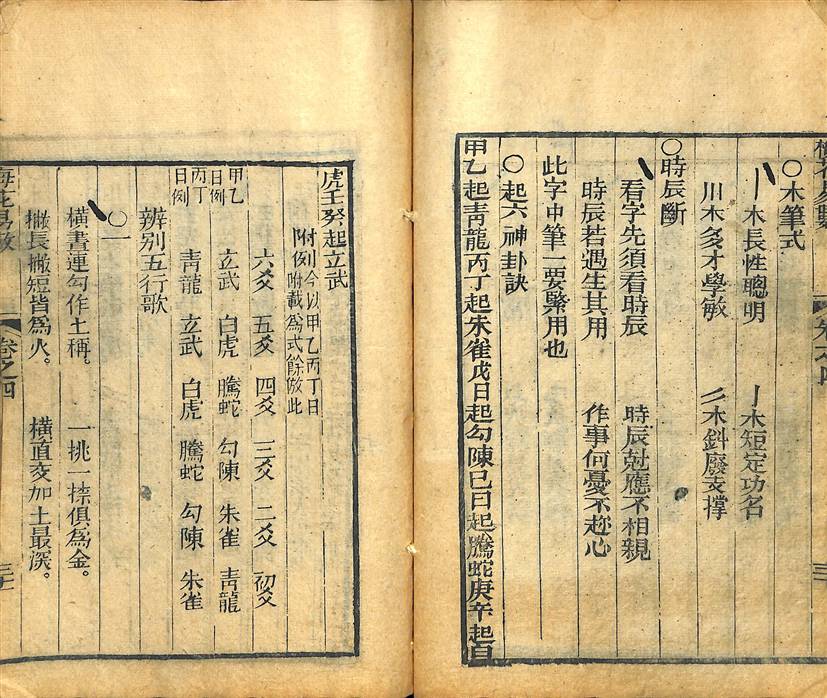 ○木筆式
丨木長性聰明　丨木短定功名
川木多才學敏　〃木斜廢支撐
○時辰斷
看字先須看時辰　時辰尅應不相親
時辰若遇生其用　作事何憂不趂心
此字中筆一要緊用也
○起六神卦訣
甲乙起青龍丙丁起朱雀戊日起勾陳巳日起騰蛇庚辛起白
虎壬癸起立武
附例今以甲乙丙丁日
附載爲式餘倣此
六爻　五爻　四爻　三爻　二爻　初爻
甲乙日例　立武　白虎　騰蛇　勾陳　朱雀　青龍
丙丁日例　青龍　立武　白虎　騰蛇　勾陳　朱雀
辨别五行歌
○一
橫書連勾作土稱。　一挑一捺俱爲金。
撇長撇短皆爲火。　橫直交加土最深。
梅花易數　卷之四